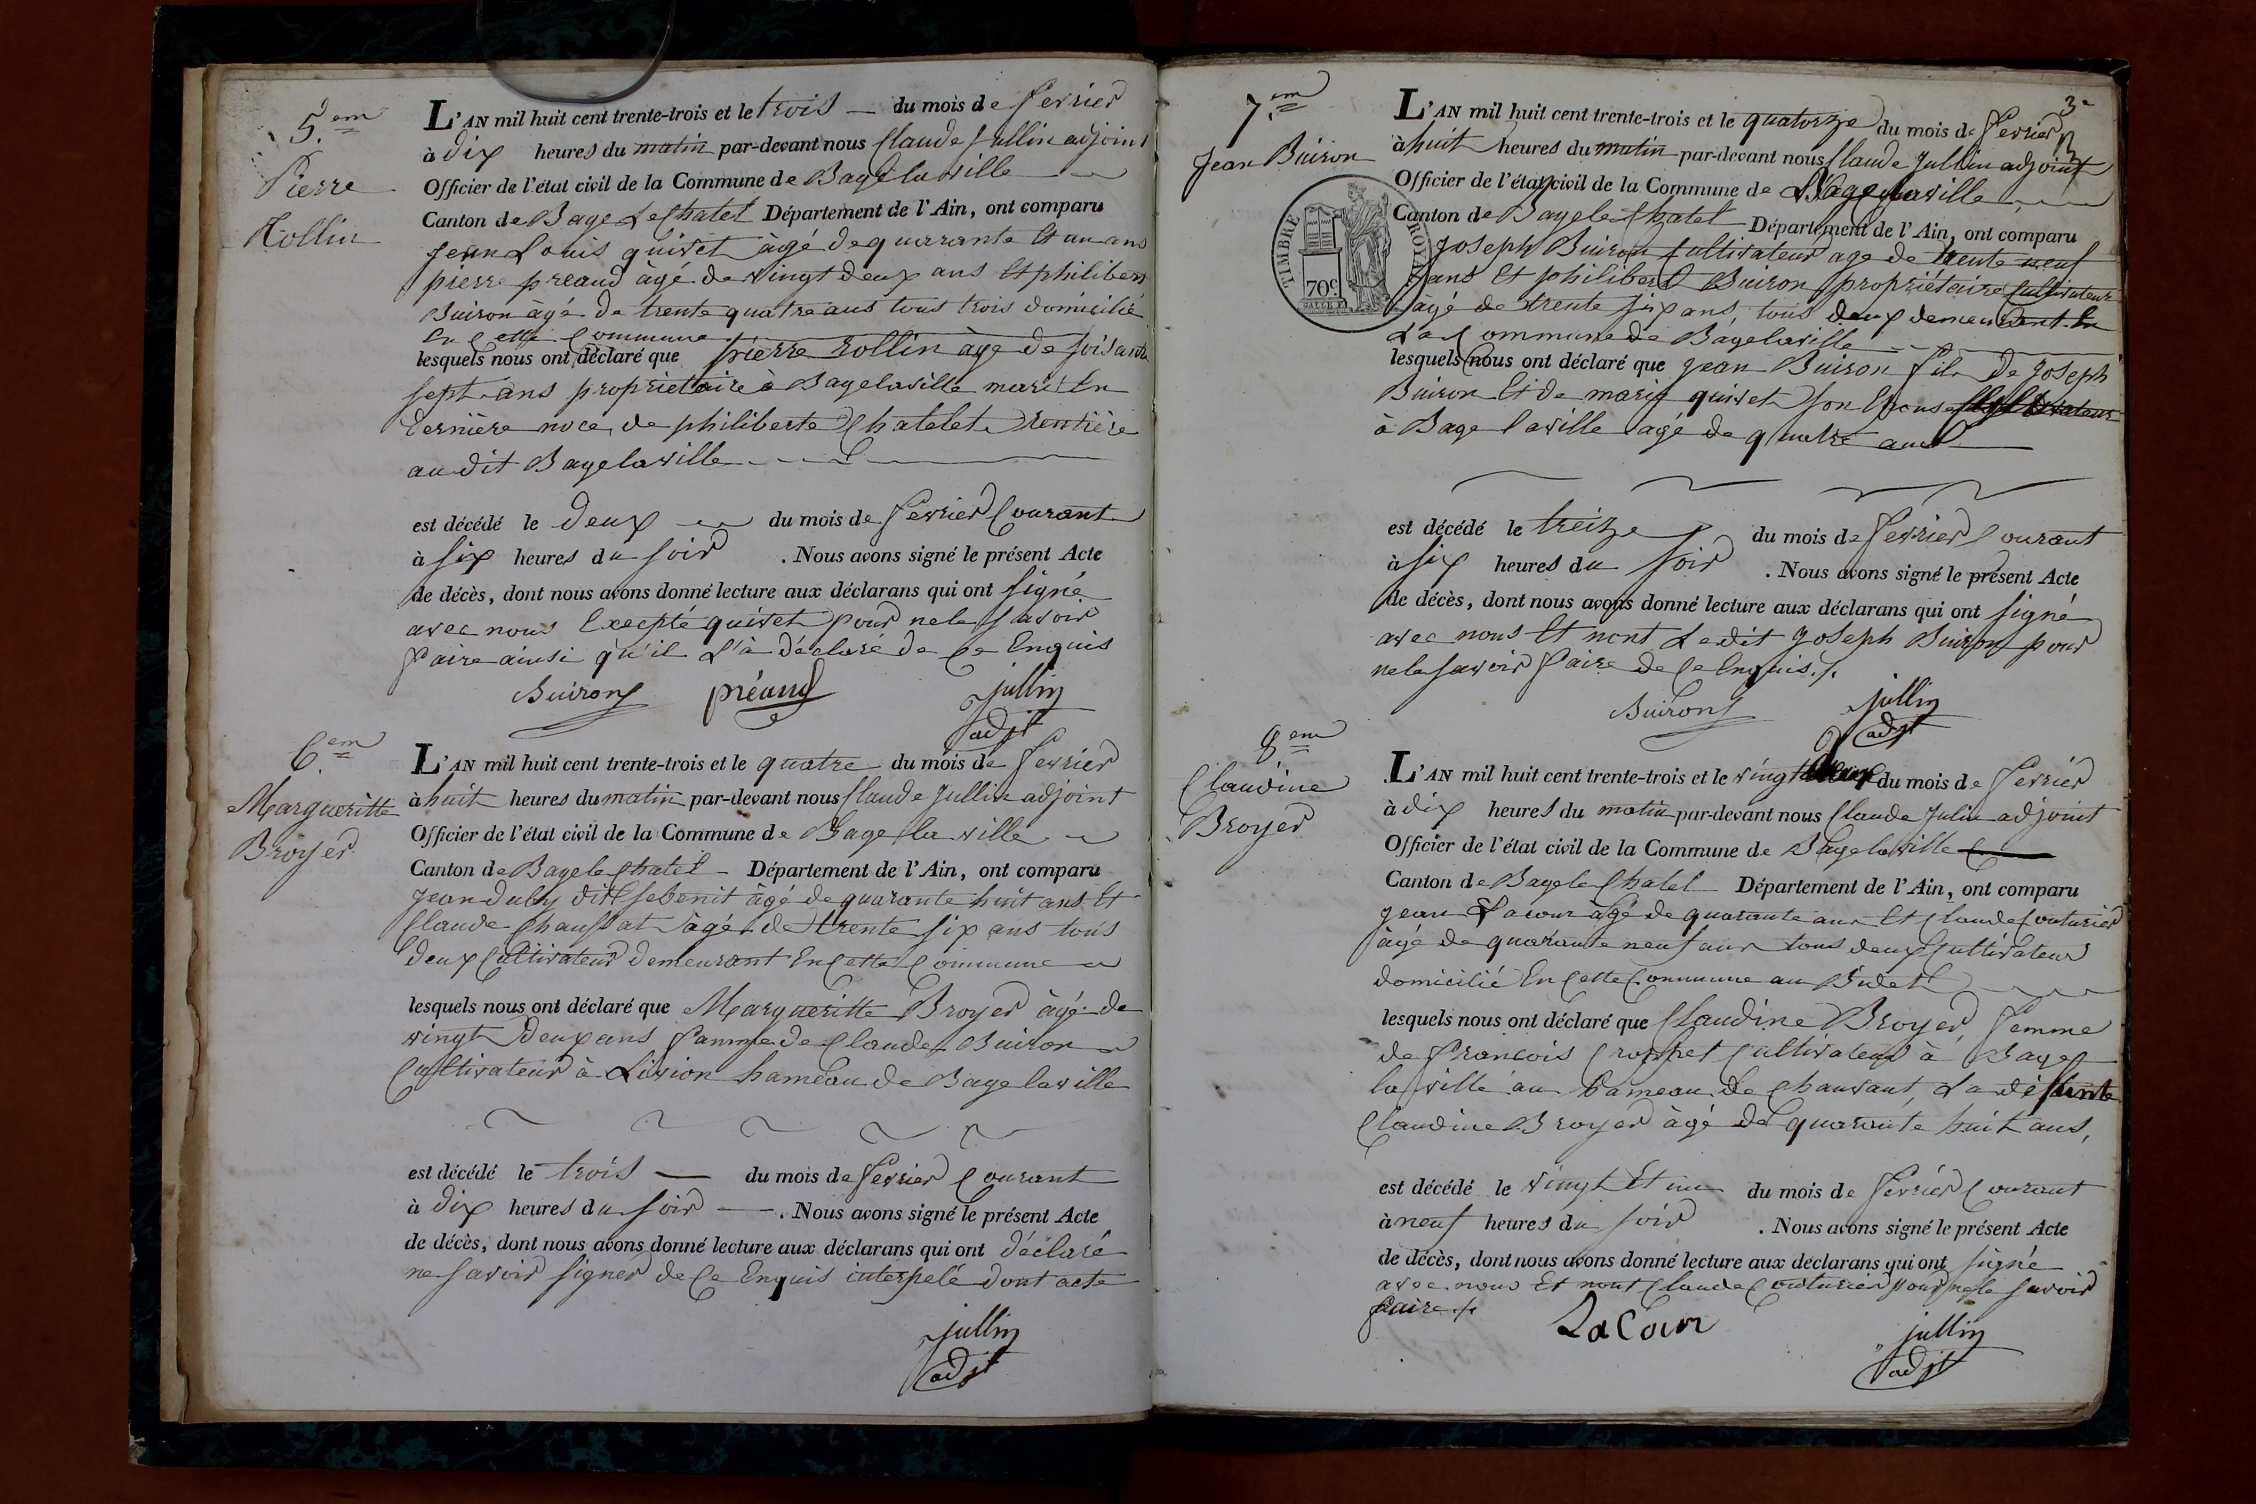 5.em
Pierre
Rollin
L'AN mil huit cent trente-trois et le trois du mois de fevrier
à dix heures du matin par-devant nous Claude Jullin adjoint
Officier de l'état civil de la Commune de Bagé la ville
Canton de Bage Le Chatel Département de l'Ain, ont comparu
Jean Louis quivet àgé de quarante Et un ans
pierre preaud àgé de vingt deux ans Et philibert
Buiron àgé de trente quatre ans tous trois domicilié
En Cette Commune
lesquels nous ont déclaré que pierre rollin àge de soisante
sept ans proprietaire à Bagelaville marié En
dernière noce de philiberte Chatelet rentière
au dit Bagelaville
est décédé le deux du mois de fevrier Courant
à six heures du soir . Nous avons signé le présent Acte
de décès, dont nous avons donné lecture aux déclarans qui ont signé
avec nous Excepté quivet pour ne le savoir
faire ainsi qu'il L'à déclaré de Ce Enquis
Buiron préaud jullin
adjt
6.em
Margueritte
Broyer
L'AN mil huit cent trente-trois et le quatre du mois de fevrier
à huit heures du matin par-devant nous Claude Jullin adjoint
Officier de l'état civil de la Commune de Bage la ville
Canton de Bage le Chatel Département de l'Ain, ont comparu
Jean duby dit àgé de quarante huit ans Et
Claude Chaussat àgé de trente six ans tous
deux Cultivateur demeurant En Cette Commune
lesquels nous ont déclaré que Margueritte Broyer àgé de
vingt deux ans famme de Claude Buiron
Cultivateur à Livion hameau de Bage laville
est décédé le trois du mois de fevrier Courant
à dix heures du soir . Nous avons signé le présent Acte
de décès, dont nous avons donné lecture aux déclarans qui ont déclaré
ne savoir signer de Ce Enquis interpelé dont acte
jullin
adjt
3e
7.em
Jean Buiron
TIMBRE ROYAL
70c.
L'AN mil huit cent trente-trois et le quatorze du mois de fevrier
à huit heures du matin par-devant nous Claude Jullin adjoint
Officier de l'état civil de la Commune de Bagelaville
Canton de Bage le Chatel Département de l'Ain, ont comparu
Joseph Buiron Cultivateur age de trente neuf
ans Et philibert Buiron propriétaire Cultivateur
àgé de trente six ans, tous deux demeurant En
La Commune de Bàgelaville
lesquels nous ont déclaré que Jean Buiron fils De Joseph
Buiron Et de marie quivet son Epouse
à Bage laville àgé de quatre ans
est décédé le treize du mois de fevrier Courant
à six heures du soir . Nous avons signé le présent Acte
de décès, dont nous avons donné lecture aux déclarans qui ont signé
avec nous Et nont Ledit Joseph Buiron pour
ne le savoir faire de Ce Enquis./.
Buiron jullin
adjt
8em
Claudine
Broyer
L'AN mil huit cent trente-trois et le vingt deux du mois de fevrier
à dix heures du matin par-devant nous Claude Julin adjoint
Officier de l'état civil de la Commune de Bagelaville
Canton de Bage le Chatel Département de l'Ain, ont comparu
Jean Lacour àgé de quarante ans Et Claude Couturier
àgé de quarante neuf ans tous deux Cultivateur
domicilié En Cette Commune au
lesquels nous ont déclaré que Claudine Broyer, femme
de francois Cultivateur à Bage
la ville au hameau de Chanvant, La défunte
Claudine Broyer àgé de quarante huit ans,
est décédé le vingt Et un du mois de février Courant
à neuf heures du soir . Nous avons signé le présent Acte
de décès, dont nous avons donné lecture aux déclarans qui ont signé
avec nous Et nont Claude Couturier pour ne le savoir
faire./.
LaCour jullin
adjt